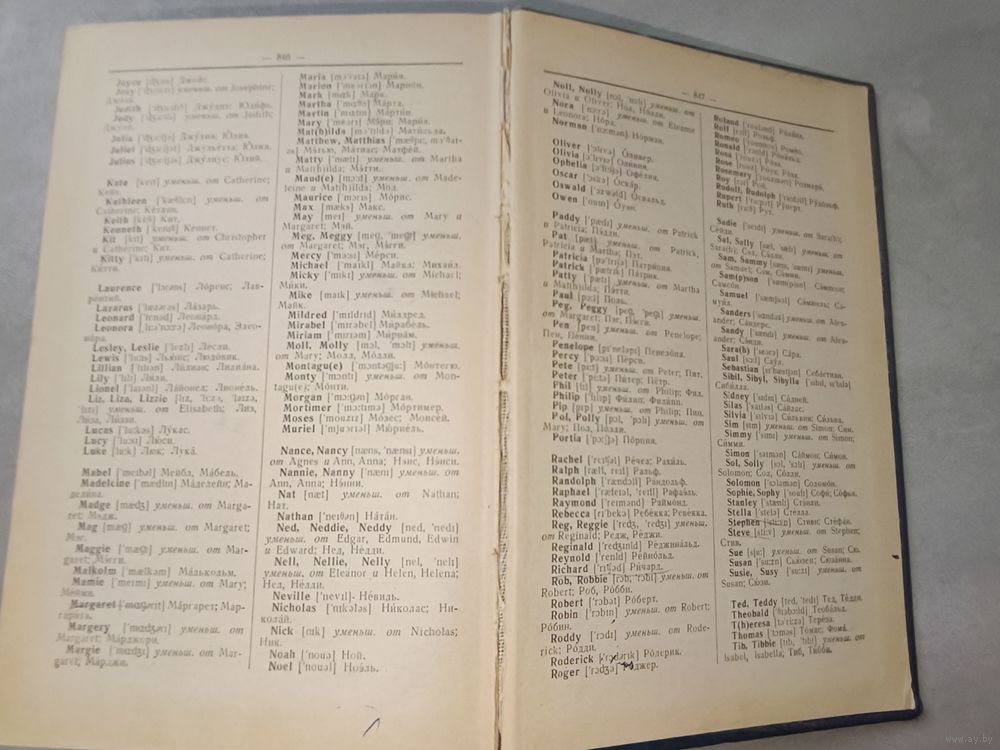 — 846 —
Joyce [dʒɔɪs] Джойс.
уменьш. от Josephine;
Judith Джудит; Юдифь.
Judy уменьш. от Judith;
Julia Джулия; Юлия.
Juliet Джульетта; Юлия.
Julius Джулиус; Юлий.
Kate [keɪt] уменьш. от Catherine;
Кейт.
Kathleen уменьш. от
Catherine; Кэтлин.
Keith [ki:θ] Кит.
Kenneth ['kenɪθ] Кеннет.
Kit [kɪt] уменьш. от Christopher
и Catherine; Кит.
Kitty ['kɪtɪ] уменьш. от Catherine;
Китти.
Laurence ['lɔrəns] Лоренс; Лав-
рентий.
Lazarus ['læzərəs] Лазарь.
Leonard ['lenəd] Леонард.
Leonora [ˌli:ə'nɔ:rə] Леонора, Элео-
нора.
Lesley, Leslie ['lezlɪ] Лесли.
Lewis ['lu:ɪs] Льюис; Людовик.
Lillian ['lɪlɪən] Лиллиан; Лилиана.
Lily ['lɪlɪ] Лили.
Lionel ['laɪənl] Лайонел; Лионель.
Liz, Liza, Lizzie [lɪz, 'li:zə, 'laɪzə,
'lɪzɪ] уменьш. от Elisabeth; Лиз,
Лиза, Лиззи.
Lucas ['lu:kəs] Лукас.
Lucy ['lu:sɪ] Люси.
Luke [lu:k] Люк; Лука.
Mabel ['meɪbəl] Мейбл, Мабель.
Madeleine ['mædlɪn] Маделейн; Ма-
делина.
Madge [mædʒ] уменьш. от Marga-
ret; Мэдж.
Mag [mæg] уменьш. от Margaret;
Мэг.
Maggie ['mægɪ] уменьш. от Mar-
garet; Мэгги.
Malcolm ['mælkəm] Малькольм.
Mamie ['meɪmɪ] уменьш. от Mary;
Мейми.
Margaret ['mɑ:gərɪt] Маргарет; Мар-
гарита.
Margery ['mɑ:dʒərɪ] уменьш. от
Margaret; Марджори.
Margie ['mɑ:dʒɪ] уменьш. от Mar-
garet; Марджи.
Maria [mə'raɪə] Мария.
Marion ['meərɪən] Марион.
Mark [mɑ:k] Марк.
Martha ['mɑ:θə] Марта.
Martin ['mɑ:tɪn] Мартин.
Mary ['meərɪ] Мэри; Мария.
Mat(h)ilda [mə'tɪldə] Матильда.
Matthew, Matthias
Мэтью, Матиас; Матфей.
Matty ['mætɪ] уменьш. от Martha
и Mat(h)ilda; Мэтти.
Maud(e) [mɔ:d] уменьш. от Made-
leine и Mat(h)ilda; Мод.
Maurice ['mɔrɪs] Морис.
Max [mæks] Макс.
May [meɪ] уменьш. от Mary и
Margaret; Мэй.
Meg, Meggy [meg, 'megɪ] уменьш.
от Margaret; Мэг, Мэгги.
Mercy ['mə:sɪ] Мерси.
Michael ['maɪkl] Майкл; Михаил.
Micky ['mɪkɪ] уменьш. от Michael;
Микки.
Mike [maɪk] уменьш. от Michael;
Майк.
Mildred ['mɪldrɪd] Милдред.
Mirabel ['mɪrəbel] Мирабель.
Miriam ['mɪrɪəm] Мириам.
Moll, Molly [mɔl, 'mɔlɪ] уменьш.
от Mary; Молл, Молли.
Montagu(e) ['mɔntəgju:] Монтегю.
Monty ['mɔntɪ] уменьш. от Mon-
tagu(e); Монти.
Morgan ['mɔ:gən] Морган.
Mortimer ['mɔ:tɪmə] Мортимер.
Moses ['mouzɪz] Мозес; Моисей.
Muriel ['mjuərɪəl] Мюриель.
Nance, Nancy [næns, 'nænsɪ] уменьш.
от Agnes и Ann, Anna; Нэнс, Нэнси.
Nannie, Nanny ['nænɪ] уменьш. от
Ann, Anna; Нэнни.
Nat [næt] уменьш. от Nathan;
Нат.
Nathan ['neɪθən] Натан.
Ned, Neddie, Neddy [ned, 'nedɪ]
уменьш. от Edgar, Edmund, Edwin
и Edward; Нед, Недди.
Nell, Nellie, Nelly [nel, 'nelɪ]
уменьш. от Eleanor и Helen, Helena;
Нел, Нелли.
Neville ['nevɪl] Невиль.
Nicholas ['nɪkələs] Николас; Ни-
колай.
Nick [nɪk] уменьш. от Nicholas;
Ник.
Noah ['nouə] Ной.
Noel ['nouəl] Ноэль.
— 847 —
Noll, Nolly [nɔl, 'nɔlɪ] уменьш. от
Olivia и Oliver; Нол, Нолли.
Nora ['nɔ:rə] уменьш. от Eleanor
и Leonora; Нора.
Norman ['nɔ:mən] Норман.
Oliver ['ɔlɪvə] Оливер.
Olivia [ɔ'lɪvɪə] Оливия.
Ophelia [ɔ'fi:ljə] Офелия.
Oscar ['ɔskə] Оскар.
Oswald ['ɔzwəld] Освальд.
Owen ['ouɪn] Оуэн.
Paddy ['pædɪ] уменьш. от Patrick
и Patricia; Падди.
Pat [pæt] уменьш. от Patrick,
Patricia и Martha; Пат.
Patricia [pə'trɪʃə] Патриция.
Patrick ['pætrɪk] Патрик.
Patty ['pætɪ] уменьш. от Martha
и Mat(h)ilda; Патти.
Paul [pɔ:l] Поль.
Peg, Peggy [peg, 'pegɪ] уменьш.
от Margaret; Пег, Пегги.
Pen [pen] уменьш. от Penelope;
Пен.
Penelope [pɪ'neləpɪ] Пенелопа.
Percy ['pə:sɪ] Перси.
Pete [pi:t] уменьш. от Peter; Пит.
Peter ['pi:tə] Питер; Пётр.
Phil [fɪl] уменьш. от Philip; Фил.
Philip ['fɪlɪp] Филип; Филипп.
Pip [pɪp] уменьш. от Philip; Пип.
Pol, Polly [pɔl, 'pɔlɪ] уменьш. от
Mary; Пол, Полли.
Portia ['pɔ:ʃjə] Порция.
Rachel ['reɪtʃəl] Рэчел; Рахиль.
Ralph [rælf, reɪf] Ральф.
Randolph ['rændɔlf] Рандольф.
Raphael ['ræfeɪəl, 'reɪfl] Рафаэль.
Raymond ['reɪmənd] Раймонд.
Rebecca [rɪ'bekə] Ребекка; Ревекка.
Reg, Reggie ['redʒ, 'redʒɪ] уменьш.
от Reginald; Редж, Реджи.
Reginald ['redʒɪnld] Реджинальд.
Reynold ['renld] Рейнольд.
Richard ['rɪtʃəd] Ричард.
Rob, Robbie [rɔb, 'rɔbɪ] уменьш. от
Robert; Роб, Робби.
Robert ['rɔbət] Роберт.
Robin ['rɔbɪn] уменьш. от Robert;
Робин.
Roddy ['rɔdɪ] уменьш. от Rode-
rick; Родди.
Roderick ['rɔdərɪk] Родерик.
Roger ['rɔdʒə] Роджер.
Roland ['roulənd] Роланд.
Rolf [rɔlf] Рольф.
Romeo ['roumɪou] Ромео.
Ronald ['rɔnld] Рональд.
Rosa ['rouzə] Роза.
Rose [rouz] Роуз; Роза.
Rosemary ['rouzmərɪ] Розмари.
Roy [rɔɪ] Рой.
Rudolf, Rudolph ['ru:dɔlf] Рудольф.
Rupert ['ru:pət] Руперт.
Ruth [ru:θ] Руфь.
Sadie ['seɪdɪ] уменьш. от Sara(h);
Сейди.
Sal, Sally [sæl, 'sælɪ] уменьш. от
Sara(h); Сэл, Салли.
Sam, Sammy [sæm, 'sæmɪ] уменьш.
от Samuel; Сэм, Сэмми.
Sam(p)son ['sæm(p)sn] Сэмпсон;
Самсон.
Samuel ['sæmjuəl] Сэмюель; Са-
муил.
Sanders ['sɑ:ndəz] уменьш. от Alex-
ander; Сандерс.
Sandy ['sændɪ] уменьш. от Alex-
ander; Сэнди.
Sara(h) ['seərə] Сара.
Saul [sɔ:l] Саул.
Sebastian [sɪ'bæstjən] Себастиан.
Sibil, Sibyl, Sibylla ['sɪbɪl, sɪ'bɪlə]
Сибилла.
Sidney ['sɪdnɪ] Сидней.
Silas ['saɪləs] Сайлас.
Silvia ['sɪlvɪə] Сильвия; Сильва.
Sim [sɪm] уменьш. от Simon; Сим.
Simmy ['sɪmɪ] уменьш. от Simon;
Симми.
Simon ['saɪmən] Саймон; Симон.
Sol, Solly [sɔl, 'sɔlɪ] уменьш. от
Solomon; Сол, Солли.
Solomon ['sɔləmən] Соломон.
Sophie, Sophy ['soufɪ] Софи; Софья.
Stanley ['stænlɪ] Стэнли.
Stella ['stelə] Стелла.
Stephen ['sti:vn] Стивн; Стефан.
Steve [sti:v] уменьш. от Stephen;
Стив.
Sue [sju:] уменьш. от Susan; Сю.
Susan ['su:zn] Сьюзен; Сюзанна.
Susie, Susy ['su:zɪ] уменьш. от
Susan; Сюзи.
Ted, Teddy [ted, 'tedɪ] Тед, Тедди.
Theobald ['θɪəbɔ:ld] Теобальд.
T(h)eresa [tə'ri:zə] Тереза.
Thomas ['tɔməs] Томас; Фома.
Tib, Tibbie [tɪb, 'tɪbɪ] уменьш. от
Isabel, Isabella; Тиб, Тибби.
www.ay.by